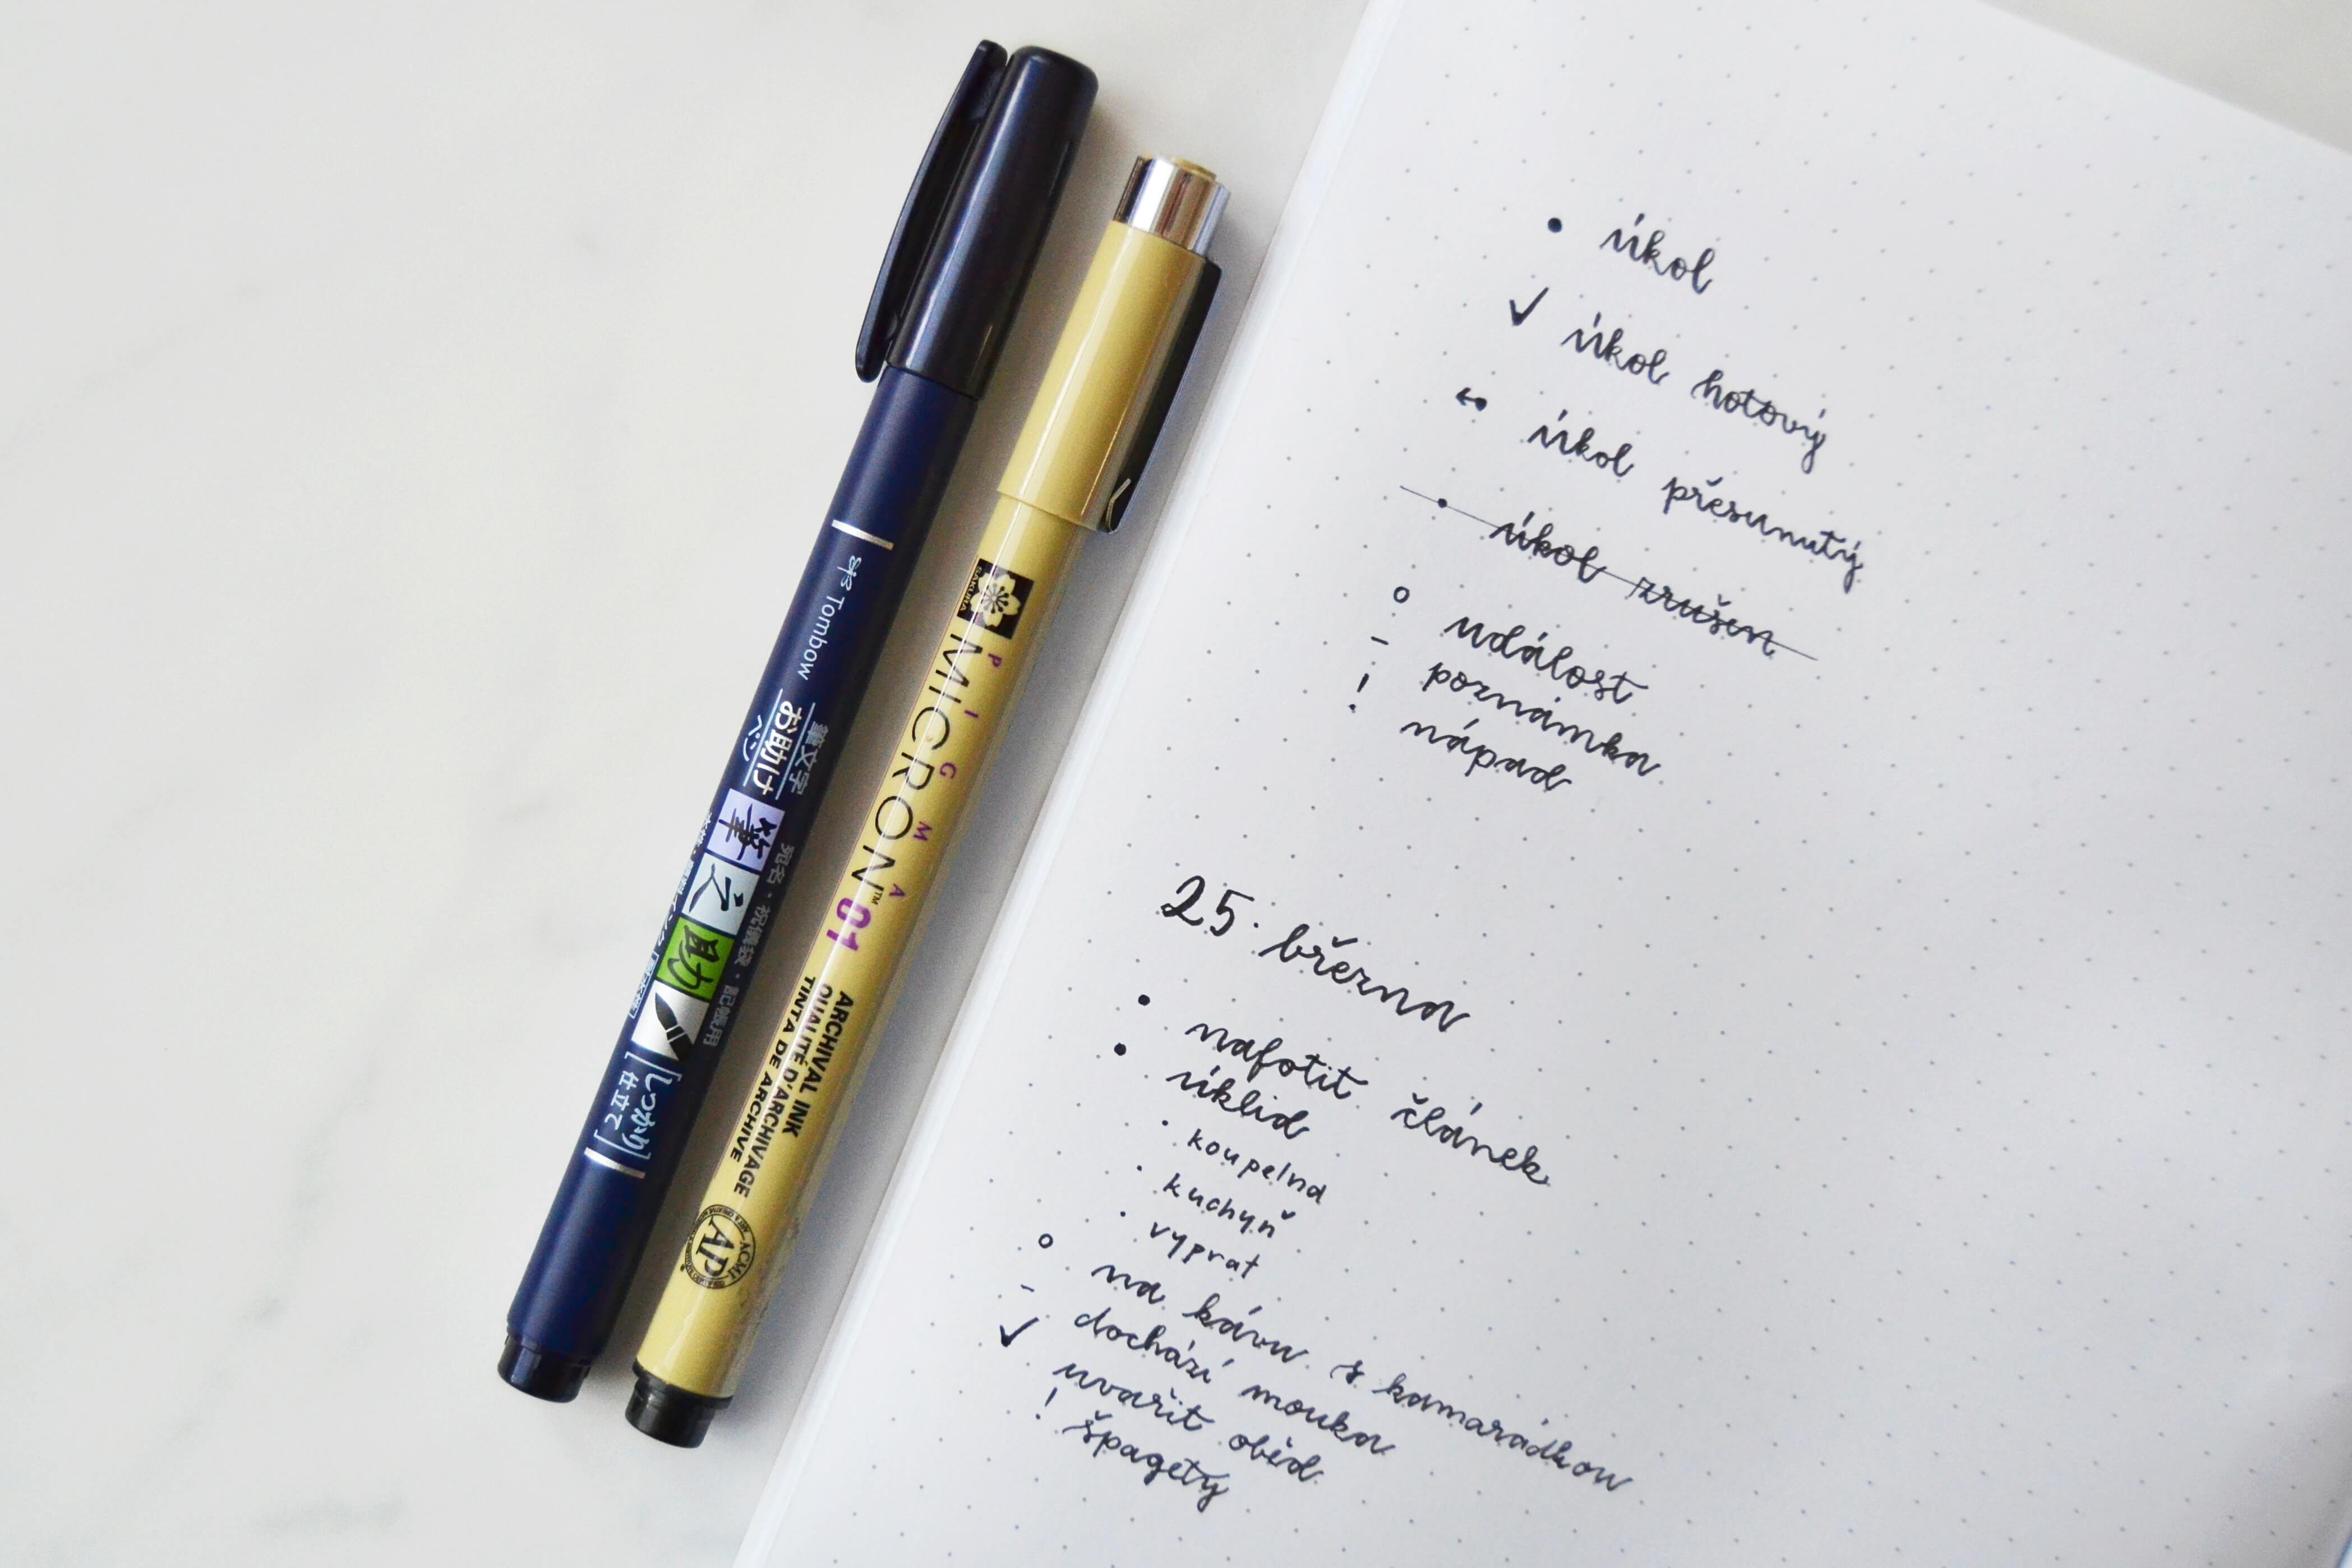 Tombow
筆文字
お助け
ペン
筆之助
宛名・祝儀袋・記帳用
しっかり
仕立て
SAKURA
PIGMA
MICRON™ 01
ARCHIVAL INK
QUALITÉ D'ARCHIVAGE
TINTA DE ARCHIVE
AP
ACMI
• úkol
✓ úkol hotový
←• úkol přesunutý
• úkol zrušen
o událost
- poznámka
! nápad
25. března
• nafotit článek
• úklid
· koupelna
· kuchyň
· vyprat
o na kávu s kamarádkou
- dochází mouka
✓ uvařit oběd
! špagety